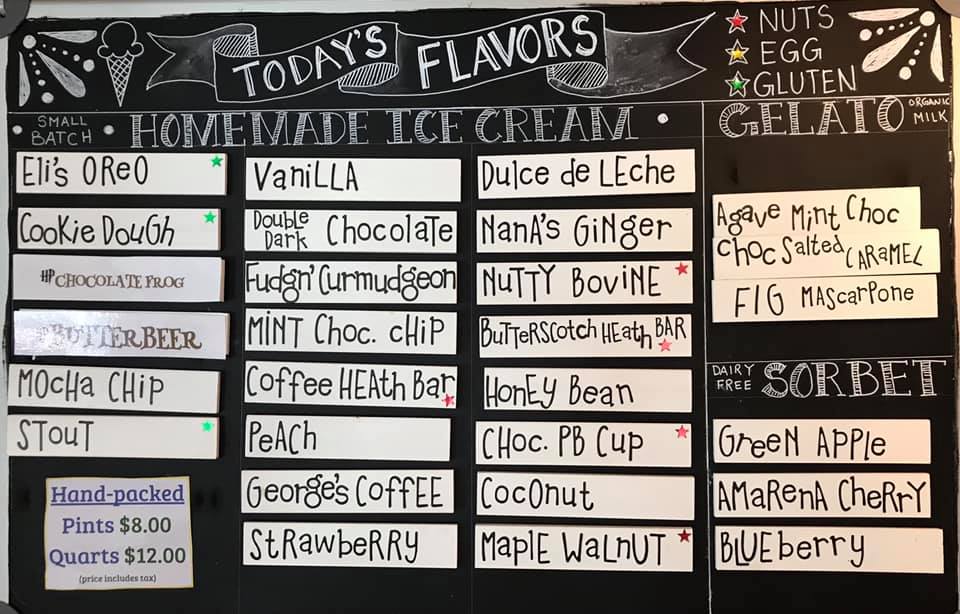 TODAY'S FLAVORS
NUTS
EGG
GLUTEN
SMALL BATCH
HOMEMADE ICE CREAM
Eli's OReO
Cookie Dough
HP CHOCOLATE FROG
BUTTERBEER
MOcHa CHip
STouT
Hand-packed
Pints $8.00
Quarts $12.00
(price includes tax)
VaniLLA
Double Dark Chocolate
Fudgn' Curmudgeon
MiNT Choc. cHiP
Coffee HEAth Bar
PeACh
George's CoffEE
StRawbeRRy
Dulce de LEche
NanA's GiNger
NuTTY BoviNE
BuTTerScotch HEath BAR
HonEy Bean
CHoc. PB Cup
CocOnut
MaplE WaLnUT
GELATO
ORGANIC MILK
Agave Mint Choc
Choc Salted CARaMEL
FIG MAScarPone
DAIRY FREE
SORBET
GreeN APPle
AMaRenA CheRrY
BLUEberry